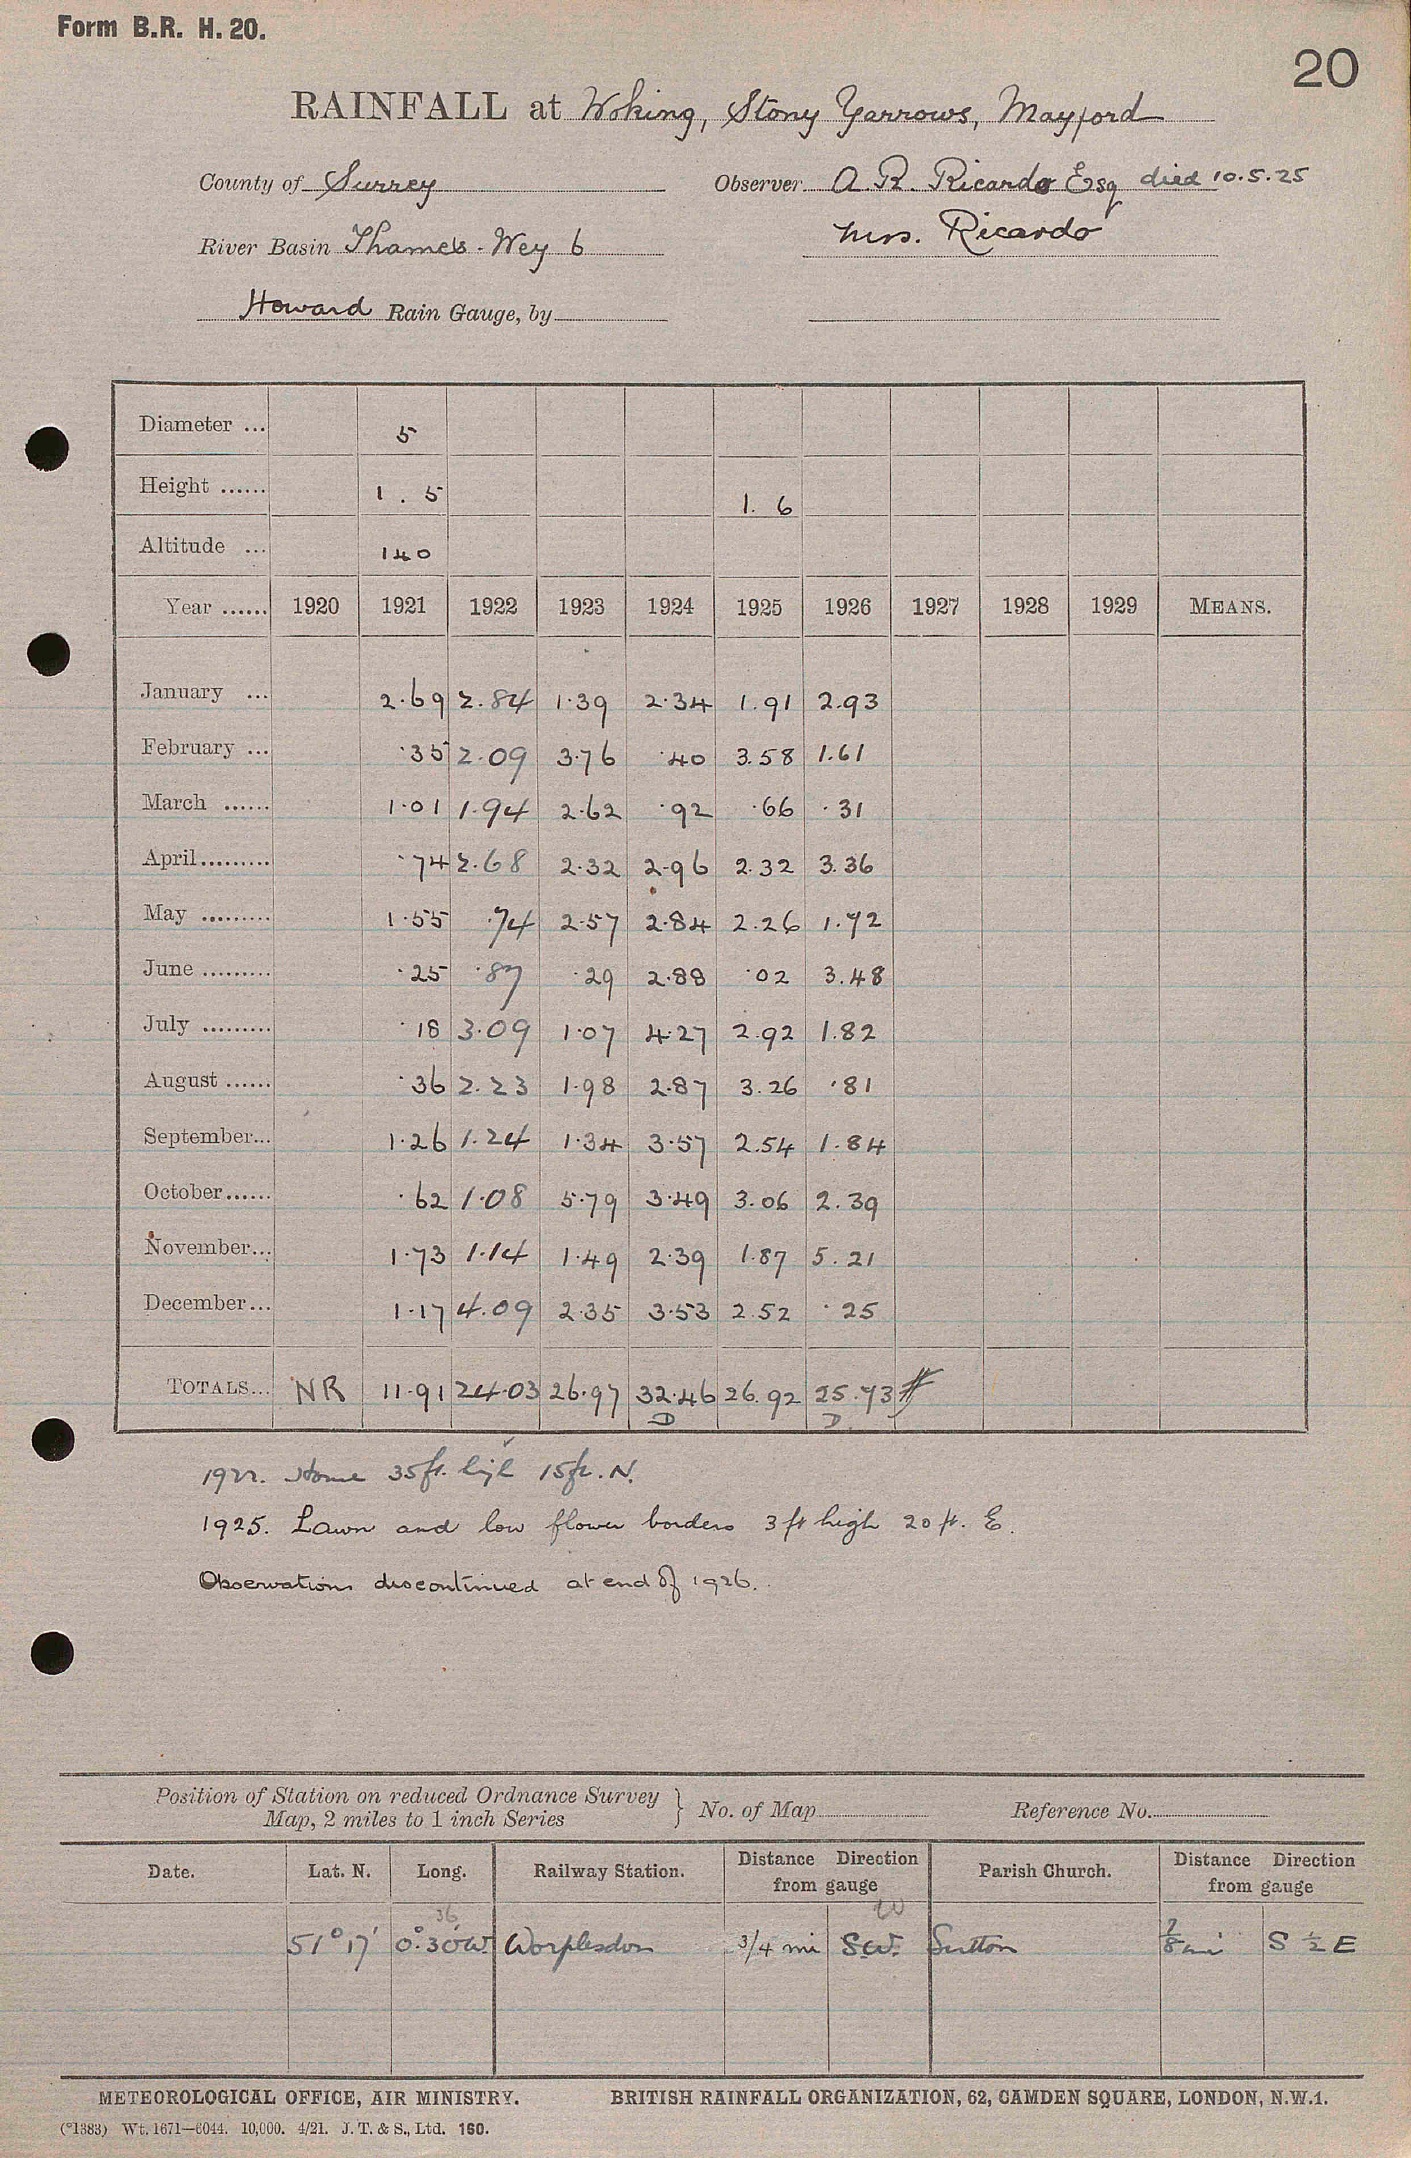 Form B.R. H. 20.
20
RAINFALL at Woking, Stony Yarrows, Mayford
County of Surrey Observer A R. Ricardo Esq died 10.5.25
River Basin Thames - Wey 6 Mrs. Ricardo
Howard Rain Gauge, by
Diameter ... 5
Height ...... 1 . 5 1. 6
Altitude ... 140
Year ...... 1920 1921 1922 1923 1924 1925 1926 1927 1928 1929 MEANS.
January ... 2.69 2.84 1.39 2.34 1.91 2.93
February ... .35 2.09 3.76 .40 3.58 1.61
March ...... 1.01 1.94 2.62 .92 .66 .31
April......... .74 2.68 2.32 2.96 2.32 3.36
May ......... 1.55 .74 2.57 2.84 2.26 1.72
June ......... .25 .87 .29 2.88 .02 3.48
July ......... .18 3.09 1.07 4.27 2.92 1.82
August ...... .36 2.23 1.98 2.87 3.26 .81
September... 1.26 1.24 1.34 3.57 2.54 1.84
October...... .62 1.08 5.79 3.49 3.06 2.39
November... 1.73 1.14 1.49 2.39 1.87 5.21
December... 1.17 4.09 2.35 3.53 2.52 .25
TOTALS... NR 11.91 24.03 26.97 32.46 26.92 25.73
D D.
1922. House 35ft. high 15ft. N.
1925. Lawn and low flower borders 3 ft high 20 ft. E.
Observations discontinued at end of 1926.
Position of Station on reduced Ordnance Survey
Map, 2 miles to 1 inch Series } No. of Map Reference No.
Date. Lat. N. Long. Railway Station. Distance Direction from gauge Parish Church. Distance Direction from gauge
36 W
51° 17' 0°.30'W. Worplesdon 3/4 mi S.W. Sutton 7/8 mi S 1/2 E
METEOROLOGICAL OFFICE, AIR MINISTRY. BRITISH RAINFALL ORGANIZATION, 62, CAMDEN SQUARE, LONDON, N.W.1.
(*1383) Wt. 1671—6044. 10,000. 4/21. J. T. & S., Ltd. 160.